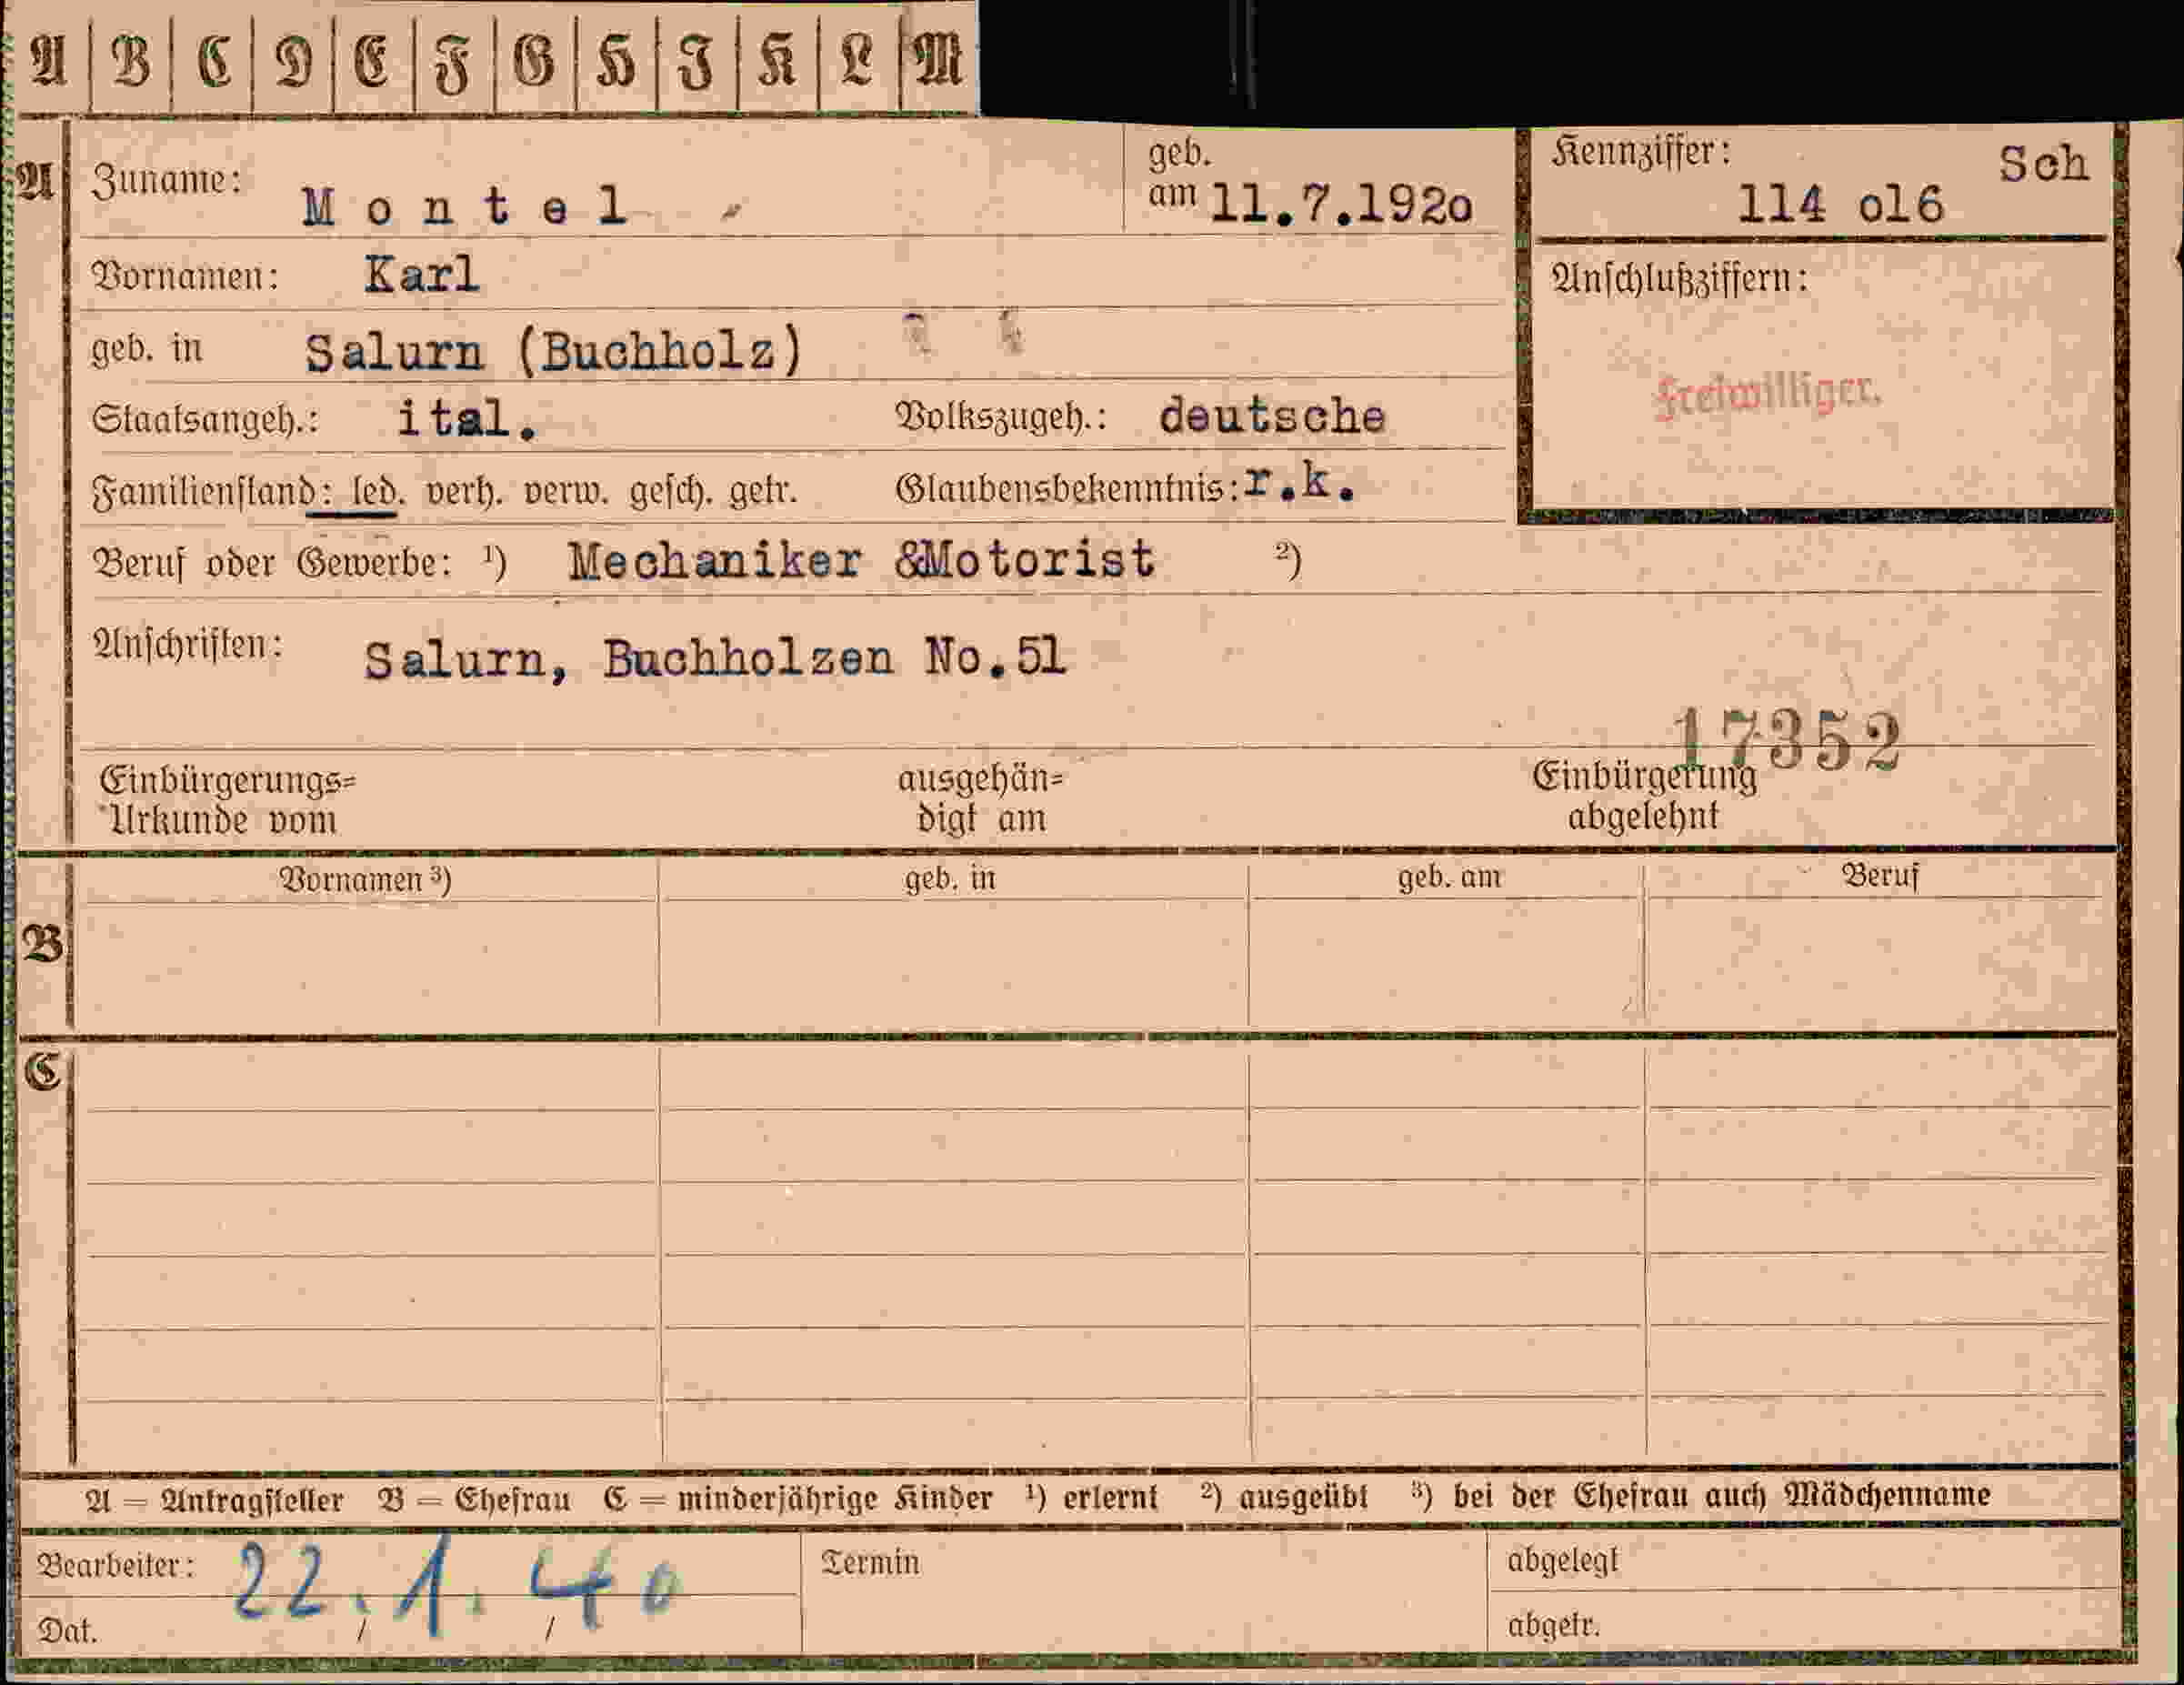 A B C D E F G H J K L M
A
Zuname: Montel
geb. am 11.7.192o
Kennziffer: Sch
114 o16
Vornamen: Karl
Anschlußziffern:
geb. in Salurn (Buchholz)
Freiwilliger.
Staatsangeh.: ital. Volkszugeh.: deutsche
Familienstand: led. verh. verw. gesch. getr. Glaubensbekenntnis: r.k.
Beruf oder Gewerbe: ¹) Mechaniker &Motorist ²)
Anschriften: Salurn, Buchholzen No.51
17352
Einbürgerungs= ausgehän= Einbürgerung
Urkunde vom digt am abgelehnt
B
Vornamen ³) geb. in geb. am Beruf
C
A = Antragsteller B = Ehefrau C = minderjährige Kinder ¹) erlernt ²) ausgeübt ³) bei der Ehefrau auch Mädchenname
Bearbeiter: 22.1.40 Termin abgelegt
Dat. / / abgetr.